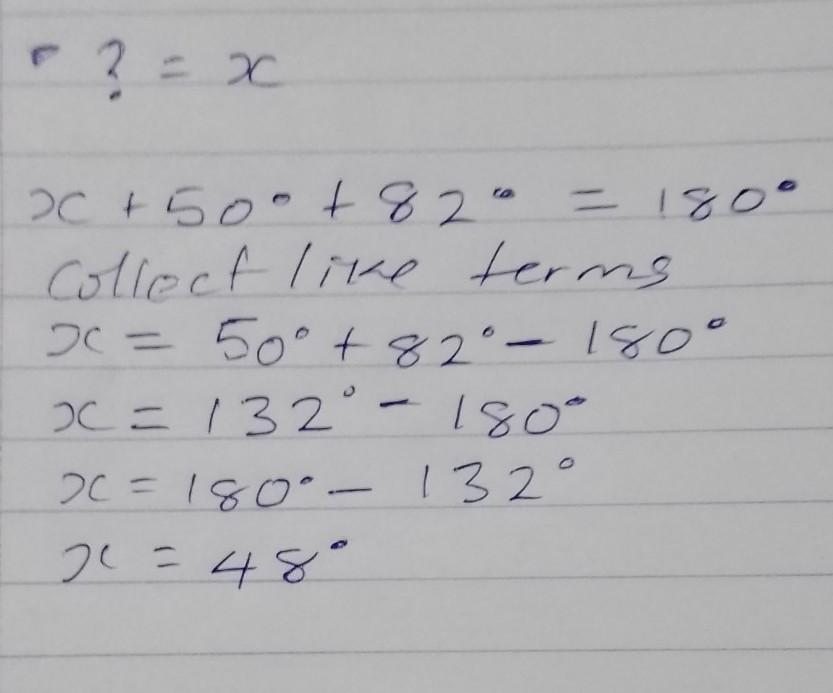 ? = x
x + 50° + 82° = 180°
Collect like terms
x = 50° + 82° - 180°
x = 132° - 180°
x = 180° - 132°
x = 48°